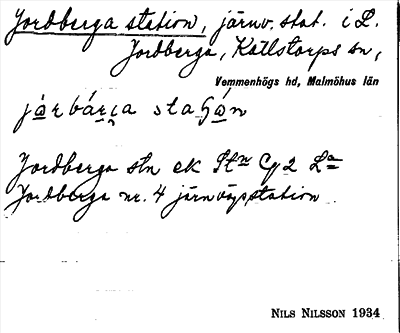 Jordberga station, järnv. stat. i L.
Jordberga, Källstorps sn,
Vemmenhögs hd, Malmöhus län
Jordberga stn ek Stn Cg2 La
Jordberga nr. 4 järnvägsstation
NILS NILSSON 1934